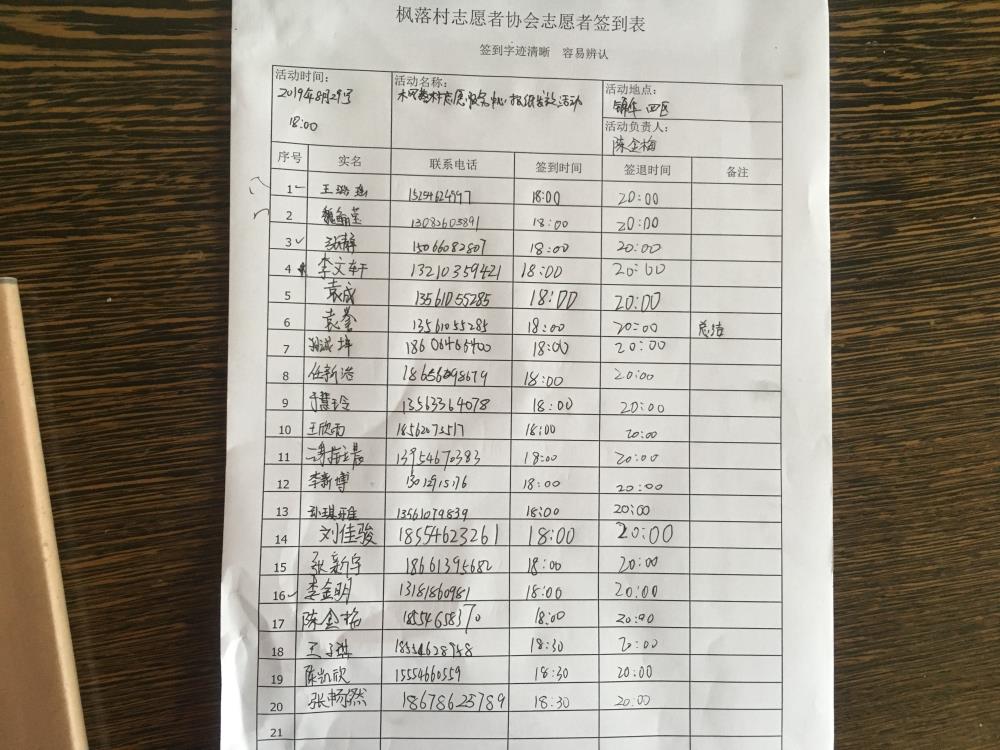 枫落村志愿者协会志愿者签到表
签到字迹清晰 容易辨认
活动时间： 活动名称： 活动地点：
2019年8月29号 志愿 活动 锦华四区
18:00 活动负责人：
陈金梅
序号 实名 联系电话 签到时间 签退时间 备注
1 王 18:00 20:00
2 魏 13082603891 18:00 20:00
3 张静 15066082807 18:00 20:00
4 李文轩 13210359421 18:00 20:00
5 袁成 13561055285 18:00 20:00
6 袁 13561055285 18:00 20:00 总结
7 18606466400 18:00 20:00
8 任新浩 18:00 20:00
9 于慧玲 13563364078 18:00 20:00
10 王欣雨 18562073517 18:00 20:00
11 13954670383 18:00 20:00
12 李新博 18:00 20:00
13 孙琪雅 13561079839 18:00 20:00
14 刘佳骏 18554623261 18:00 20:00
15 张新宇 18661395682 18:00 20:00
16 李金明 13181860981 18:00 20:00
17 陈金梅 18554658370 18:00 20:00
18 王子 18:30 20:00
19 陈凯欣 15554660559 18:30 20:00
20 张畅然 18678625789 18:30 20:00
21